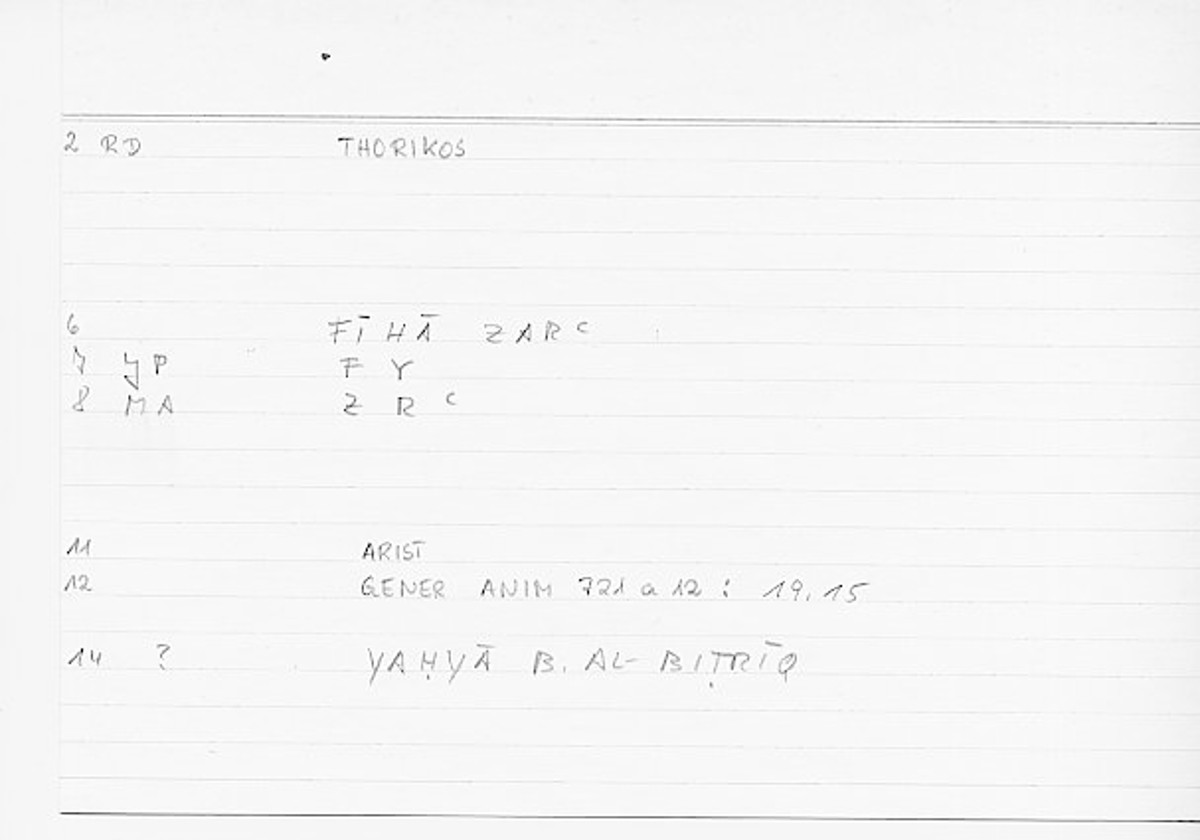 2 RD THORIKOS
6 FĪHĀ ZARᶜ
7 YP F Y
8 MA Z R ᶜ
11 ARIST
12 GENER ANIM 721 a 12 : 19,15
14 ? YAḤYĀ B. AL-BIṬRĪQ